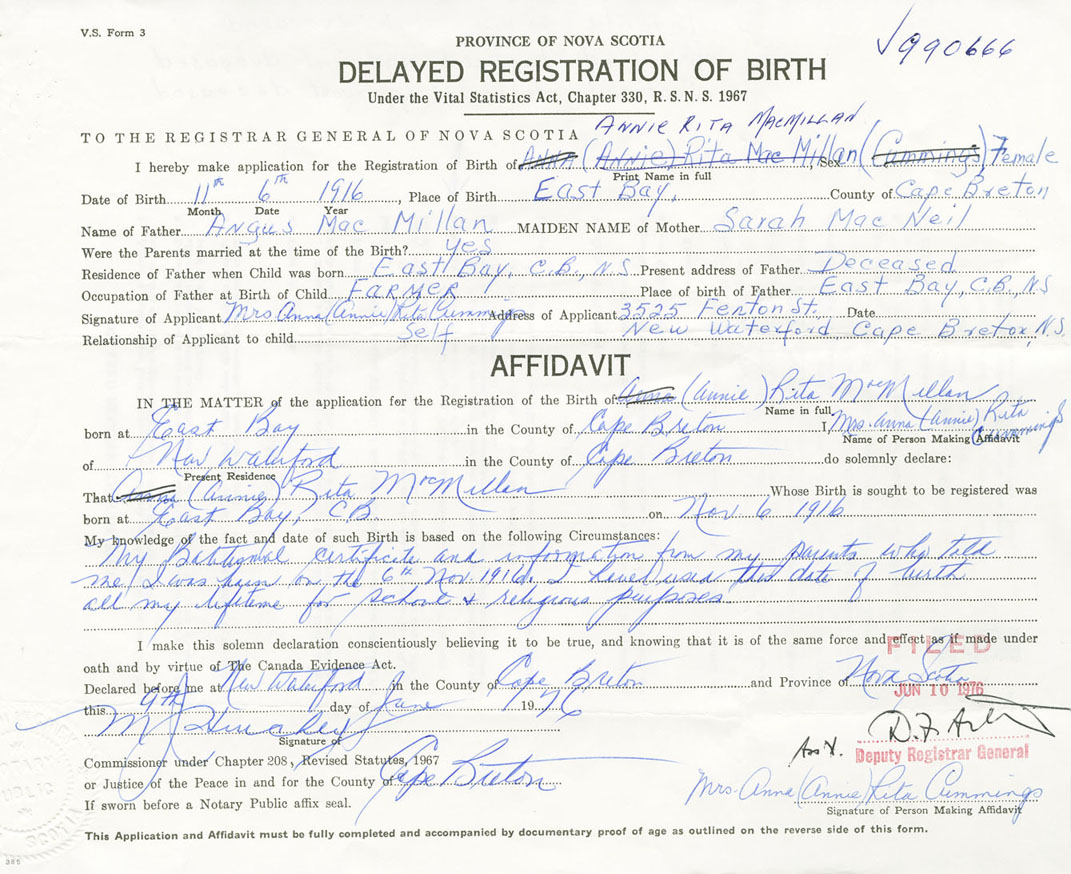 V.S. Form 3
990666
PROVINCE OF NOVA SCOTIA
DELAYED REGISTRATION OF BIRTH
Under the Vital Statistics Act, Chapter 330, R.S.N.S. 1967
ANNIE RITA MACMILLAN
TO THE REGISTRAR GENERAL OF NOVA SCOTIA
I hereby make application for the Registration of Birth of Anna (Annie) Rita Mac Millan (Cummings) Sex Female
Print Name in full
Date of Birth 11th 6th 1916, Place of Birth East Bay, County of Cape Breton
Month Date Year
Name of Father Angus Mac Millan MAIDEN NAME of Mother Sarah Mac Neil
Were the Parents married at the time of the Birth? yes
Residence of Father when Child was born East Bay, C.B., N.S. Present address of Father Deceased
Occupation of Father at Birth of Child FARMER Place of birth of Father East Bay, C.B., NS
Signature of Applicant Mrs Anna (Annie) Rita Cummings Address of Applicant 3525 Fenton St. Date
Relationship of Applicant to child Self New Waterford, Cape Breton, N.S.
AFFIDAVIT
IN THE MATTER of the application for the Registration of the Birth of Anna (Annie) Rita MacMillan
Name in full
born at East Bay in the County of Cape Breton I, Mrs. Anna (Annie) Rita Cummings
Name of Person Making Affidavit
of New Waterford in the County of Cape Breton do solemnly declare:
Present Residence
That Anna (Annie) Rita McMillan Whose Birth is sought to be registered was
born at East Bay, C.B. on Nov 6 1916
My knowledge of the fact and date of such Birth is based on the following Circumstances:
My Batismal certificate and information from my parents who told
me I was born on the 6th Nov. 1916. I have used this date of birth
all my lifetime for school & religious purposes
I make this solemn declaration conscientiously believing it to be true, and knowing that it is of the same force and effect as if made under
oath and by virtue of The Canada Evidence Act.
FILED
Declared before me at New Waterford in the County of Cape Breton and Province of Nova Scotia
JUN 10 1976
this 9th day of June 1976
Signature of
Ass't. Deputy Registrar General
Commissioner under Chapter 208, Revised Statutes, 1967
or Justice of the Peace in and for the County of Cape Breton
Mrs. Anna (Annie) Rita Cummings
If sworn before a Notary Public affix seal.
Signature of Person Making Affidavit
This Application and Affidavit must be fully completed and accompanied by documentary proof of age as outlined on the reverse side of this form.
385